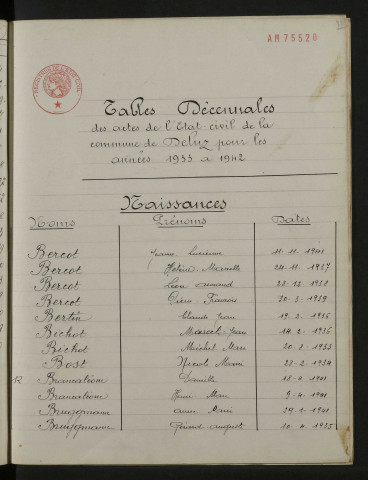 AM 75520
Tables Décennales
des actes de l'Etat civil de la
commune de Deluz pour les
années 1933 à 1942
Naissances
Noms Prénoms Dates
Bercot Lucienne 11. 11. 1941
Bercot Marcelle 24. 11. 1937
Bercot Léon Armand
Bercot Pierre François 30. 3. 1939
Bertin Claude Jean 19. 2. 1936
Bichot Marcel Jean 14. 2. 1936
Bichot Michel 1933
Bost Nicole Marie 1934
R Brancatiom 18. 4. 1941
Brancatiom 9. 4. 1941
Bruggmann Anne Marie 29. 1. 1941
Bruggmann Auguste 10. 4. 1935